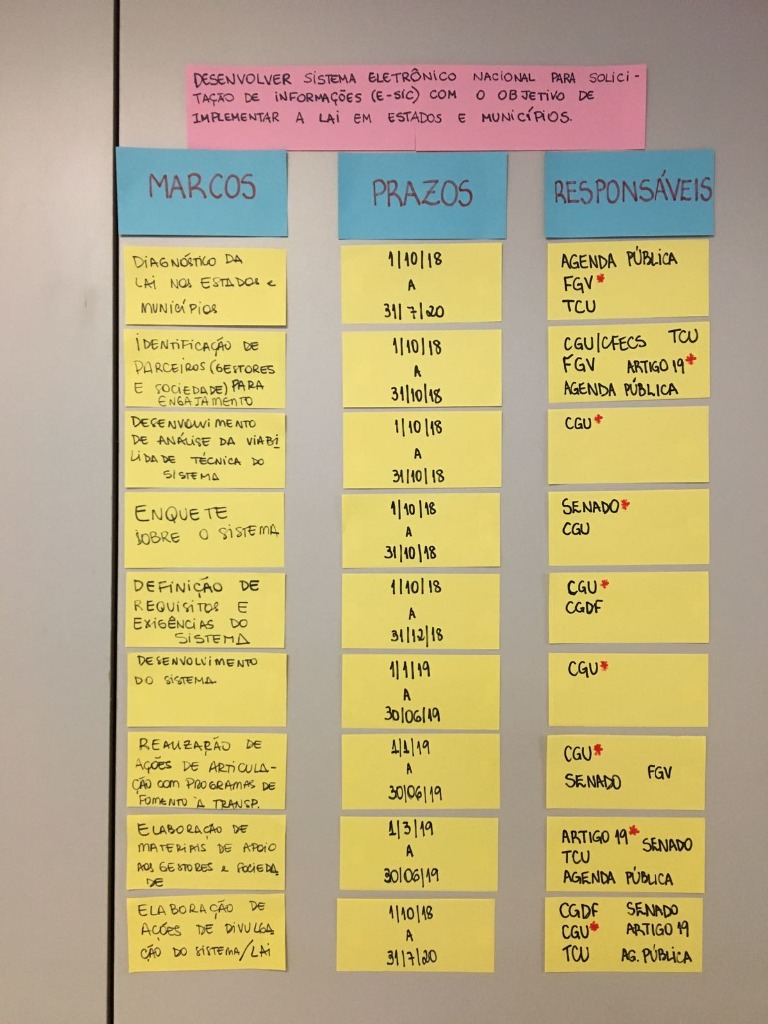 DESENVOLVER SISTEMA ELETRÔNICO NACIONAL PARA SOLICI-
TAÇÃO DE INFORMAÇÕES (E-SIC) COM O OBJETIVO DE
IMPLEMENTAR A LAI EM ESTADOS E MUNICÍPIOS.
MARCOS
PRAZOS
RESPONSÁVEIS
DIAGNÓSTICO DA
LAI NOS ESTADOS E
MUNICÍPIOS
1/10/18
A
31/7/20
AGENDA PÚBLICA
FGV*
TCU
IDENTIFICAÇÃO DE
PARCEIROS (GESTORES
E SOCIEDADE) PARA
ENGAJAMENTO
1/10/18
A
31/10/18
CGU/CFECS TCU
FGV ARTIGO 19*
AGENDA PÚBLICA
DESENVOLVIMENTO
DE ANÁLISE DA VIABI
LIDADE TÉCNICA DO
SISTEMA
1/10/18
A
31/10/18
CGU*
ENQUETE
SOBRE O SISTEMA
1/10/18
A
31/10/18
SENADO*
CGU
DEFINIÇÃO DE
REQUISITOS E
EXIGÊNCIAS DO
SISTEMA
1/10/18
A
31/12/18
CGU*
CGDF
DESENVOLVIMENTO
DO SISTEMA
1/1/19
A
30/06/19
CGU*
REALIZAÇÃO DE
AÇÕES DE ARTICULA-
ÇÃO COM PROGRAMAS DE
FOMENTO À TRANSP.
1/1/19
A
30/06/19
CGU*
SENADO FGV
ELABORAÇÃO DE
MATERIAIS DE APOIO
AOS GESTORES E SOCIEDA
DE
1/3/19
A
30/06/19
ARTIGO 19* SENADO
TCU
AGENDA PÚBLICA
ELABORAÇÃO DE
AÇÕES DE DIVULGA
ÇÃO DO SISTEMA/LAI
1/10/18
A
31/7/20
CGDF SENADO
CGU* ARTIGO 19
TCU AG. PÚBLICA